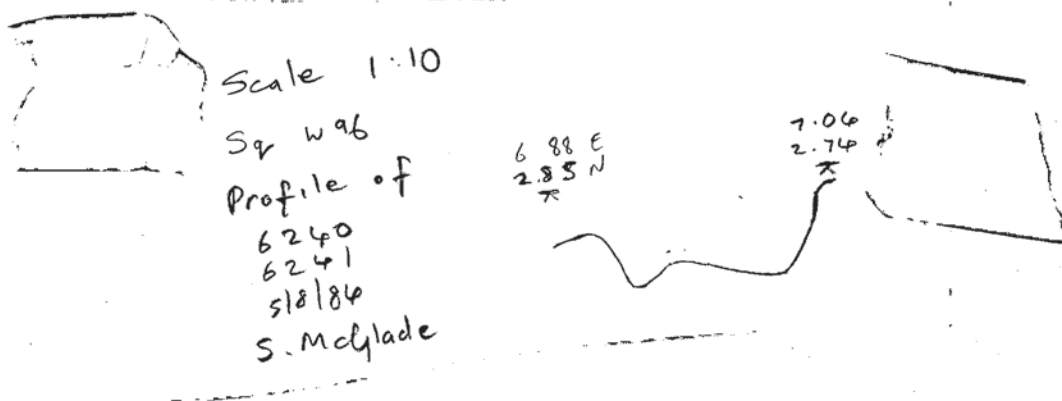 Scale 1:10
Sq W 96
Profile of
6240
6241
5/8/84
S. McGlade
6 88 E
2.85 N
7.04
2.74